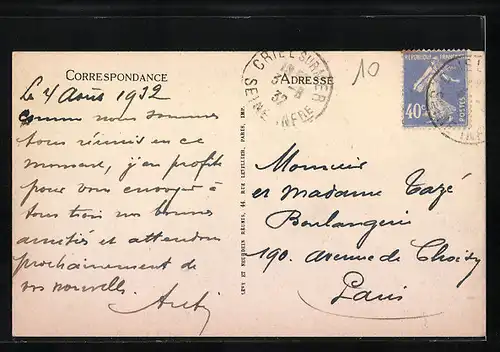 CORRESPONDANCE
Le 4 Août 1932
comme nous sommes
tous réunis en ce
moment, j'en profite
pour vous envoyer à
tous trois nos bonnes
amitiés et attendons
prochainement de
vos nouvelles.
LEVY ET NEURDEIN RÉUNIS, 44, RUE LETELLIER, PARIS, IMP.
ADRESSE
CRIEL SUR MER
32
SEINE INFRE
10
REPUBLIQUE FRANÇAISE
40c
POSTES
Monsieur
et Madame Tazé
Boulangerie
190. avenue de Choisy
Paris